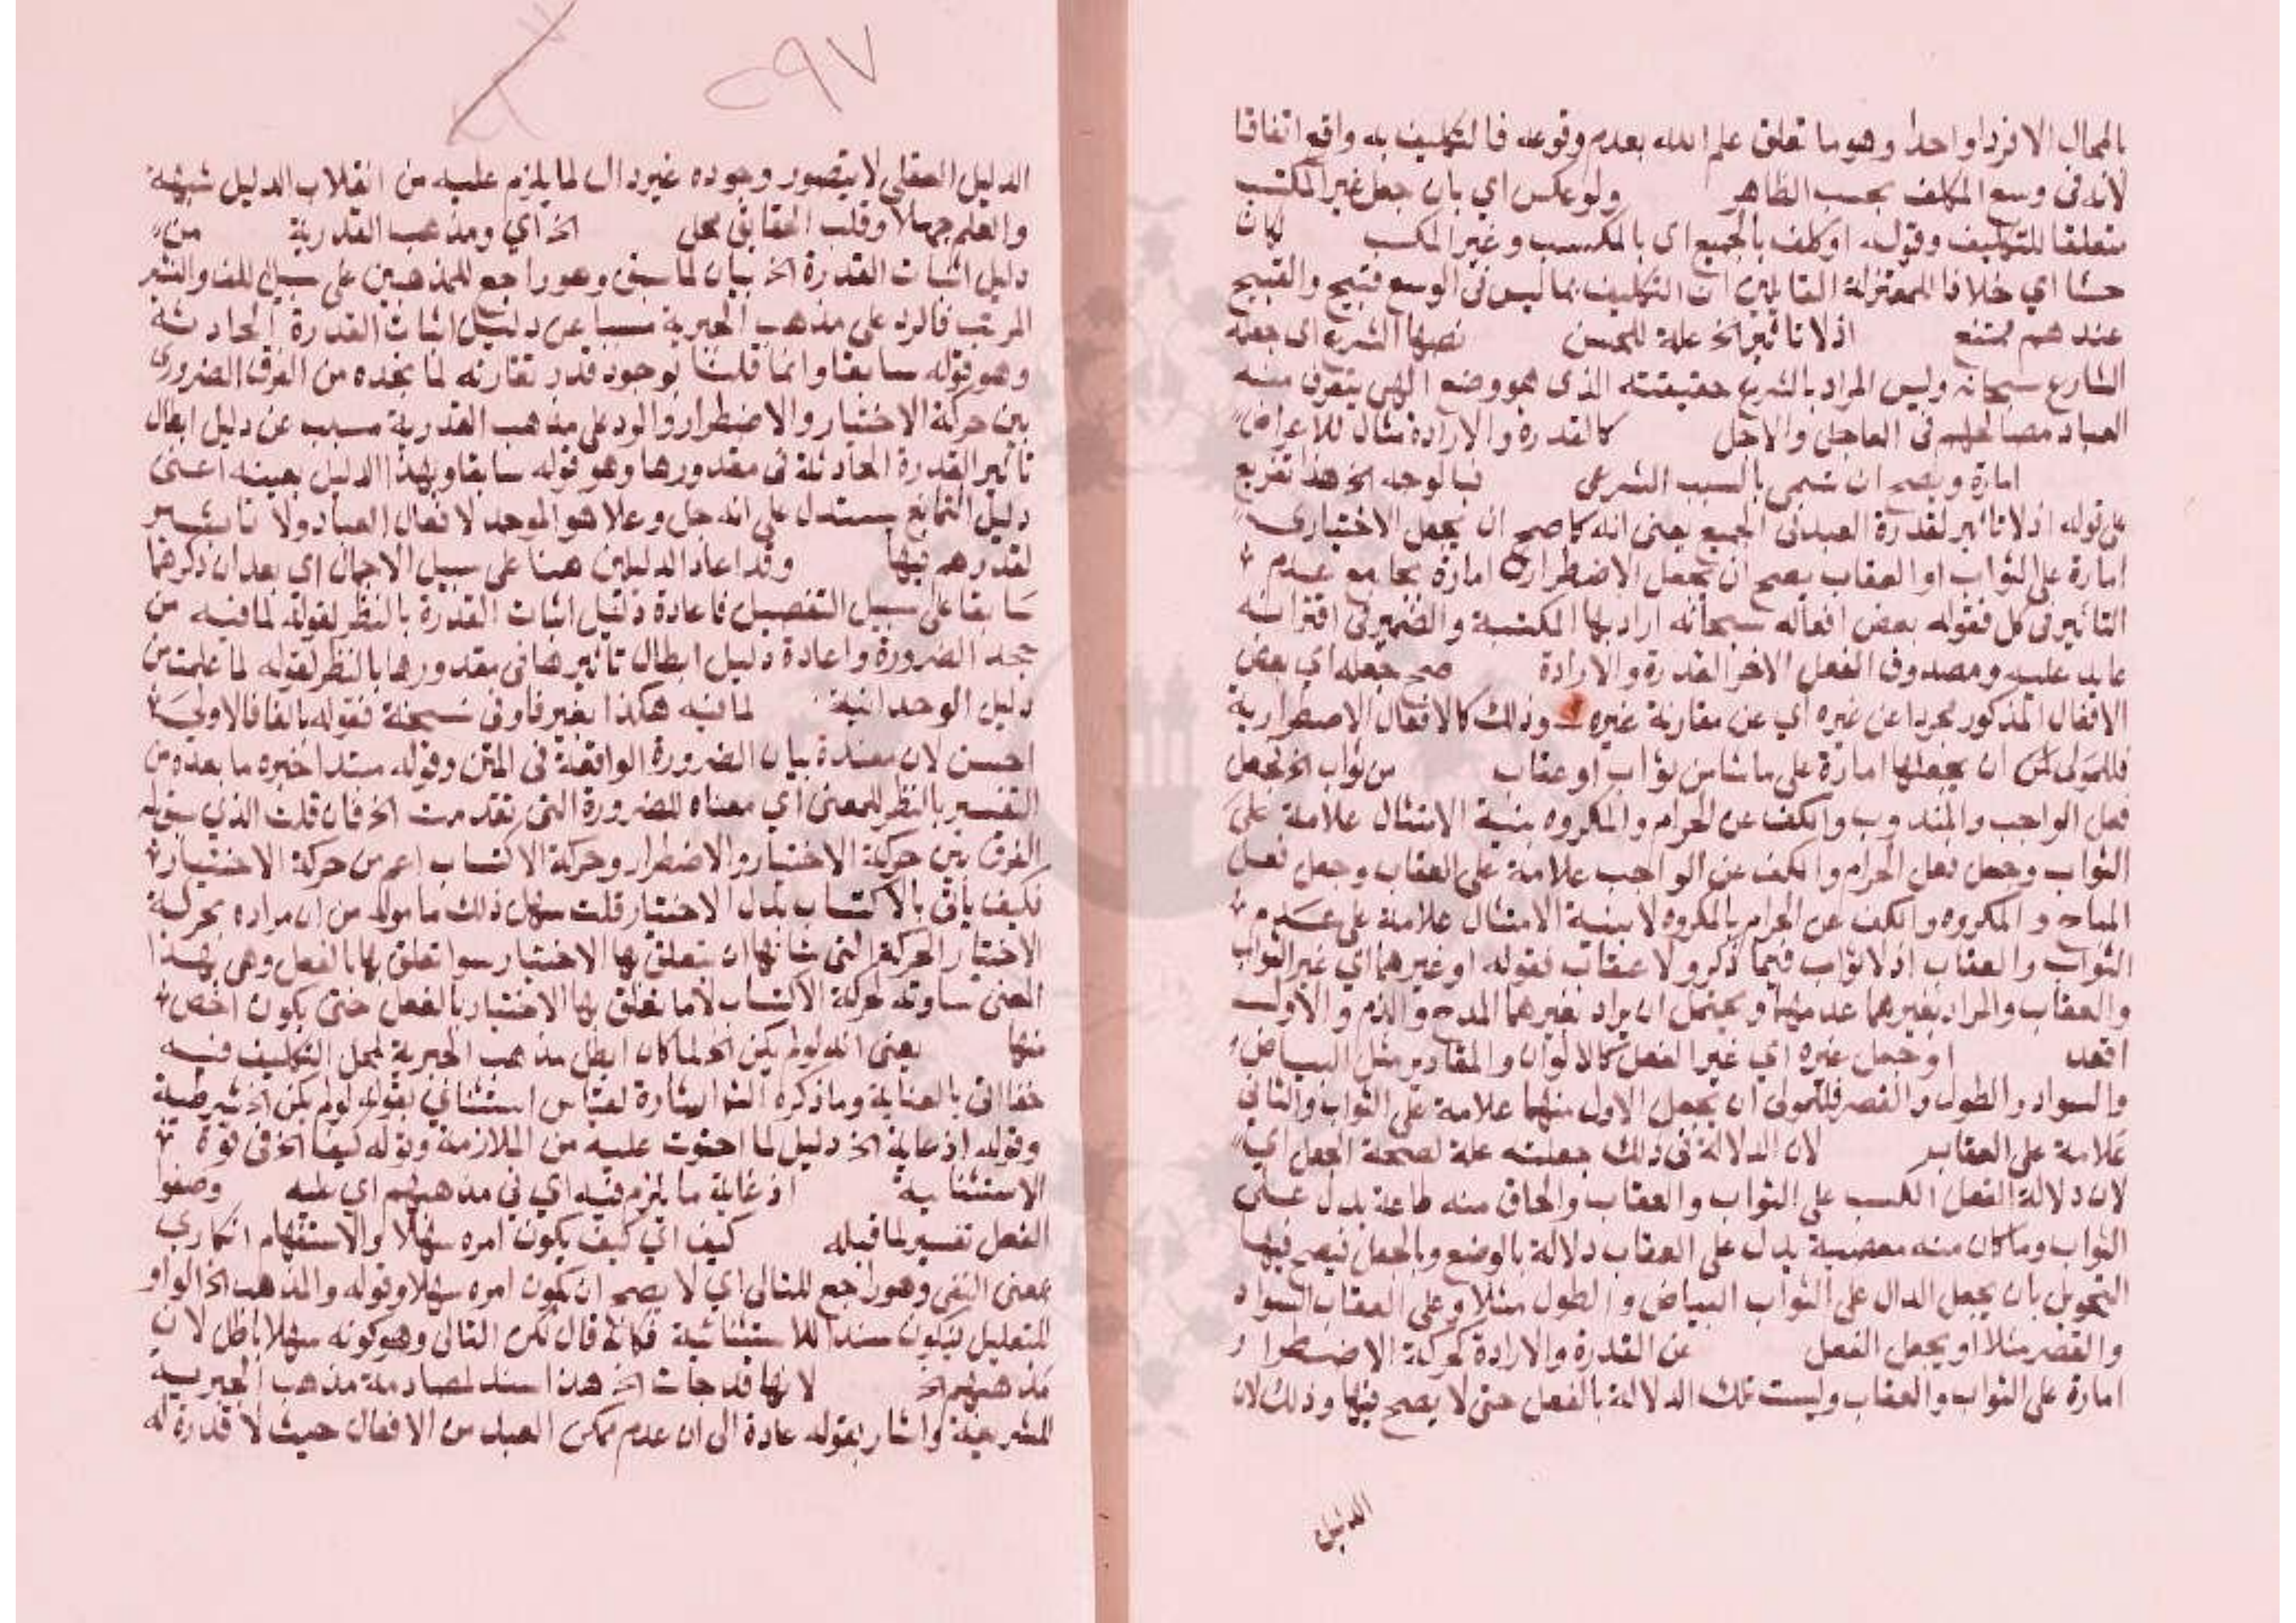 بالمحال الا فردا واحدا وهو ما تعلق علم الله بعدم وقوعه فالتكليف به واقع اتفاقا
لانه في وسع المكلف بحسب الظاهر ولو عكس اي بان جعل غير المكتسب
متعلقا للتكليف وقوله او كلف بالجميع اي بالمكتسب وغير المكتسب لكان
حسنا اي خلافا للمعتزلة القايلين ان التكليف بما ليس في الوسع قبيح والقبيح
عندهم ممتنع اذ لا تاثير الخ علة للحسن نصبها الشرع اي جعله
الشارع سبحانه وليس المراد بالشرع حقيقته الذي هو وضع الهي يتعرف منه
العباد مصالحهم في العاجل والاجل كالقدرة والارادة مثال للاعراض
امارة ويصح ان تسمى بالسبب الشرعي فبالوجه الخ هذا تفريع
على قوله اذ لا تاثير لقدرة العبد في الجميع يعني انه كما صح ان يجعل الاختياري
امارة على الثواب او العقاب يصح ان يجعل الاضطراري امارة بجامع عدم
التاثير في كل فقوله بعض افعاله سبحانه اراد بها المكتسبة والضمير في اقترانه
عايد عليه ومصدوق الفعل الاخر القدرة والارادة صح جعله اي بعض
الافعال المذكور مجردا عن غيره اي عن مقارنة غيره وذلك كالافعال الاضطرارية
فللمولى ان يجعلها امارة على ما شا من ثواب او عقاب من ثواب الخ لجعل
فعل الواجب والمندوب والكف عن الحرام والمكروه بنية الامتثال علامة على
الثواب وجعل فعل الحرام والكف عن الواجب علامة على العقاب وجعل فعل
المباح والمكروه والكف عن الحرام بالمكروه لا بنية الامتثال علامة على عدم
الثواب والعقاب اذ لا ثواب فيما ذكر ولا عقاب فقوله او غيرهما اي غير الثواب
والعقاب والمراد بغيرهما عدمهما ويحتمل ان يراد بغيرهما المدح والذم والاول
اقعد او جعل غيره اي غير الفعل كالالوان والمقادير مثل البياض
والسواد والطول والقصر فللمولى ان يجعل الاول منهما علامة على الثواب والثاني
علامة على العقاب لان الدلالة في ذلك جعلية علة لصحة الجعل اي
لان دلالة الفعل المكتسب على الثواب والعقاب والحاق منه طاعة يدل على
الثواب وما كان منه معصية يدل على العقاب دلالة بالوضع وبالجعل فيصح فيها
التحويل بان يجعل الدال على الثواب البياض والطول مثلا وعلى العقاب السواد
والقصر مثلا او يجعل الفعل عن القدرة والارادة كحركة الاضطرار
امارة على الثواب والعقاب وليست تلك الدلالة بالفعل حتى لا يصح فيها وذلك لان
الدليل
٢٩٧
الدليل العقلي لا يتصور وجوده غير دال لما يلزم عليه من انقلاب الدليل شبهة
والعلم جهلا وقلب الحقايق محل الخ اي ومذهب القدرية من
دليل اثبات القدرة الخ بيان لما سبق وهو راجع للمذهبين على سبيل اللف والنشر
المرتب فالرد على مذهب الجبرية مسببا عن دليل اثبات القدرة الحادثة
وهو قوله سابقا وانما قلنا بوجود قدر تقارنه لما نجده من الفرق الضروري
بين حركة الاختيار والاضطرار والرد على مذهب القدرية مسبب عن دليل ابطال
تاثير القدرة الحادثة في مقدورها وهو قوله سابقا وبهذا الدليل بعينه اعني
دليل التمانع يستدل على انه جل وعلا هو الموجد لافعال العباد ولا تاثير
لقدرهم فيها وقد اعاد الدليلين هنا على سبيل الاجمال اي بعد ان ذكرهما
سابقا على سبيل التفصيل فاعادة دليل اثبات القدرة بالنظر لقوله لما فيه من
جحد الضرورة واعادة دليل ابطال تاثيرها في مقدورها بالنظر لقوله لما علمت من
دليل الوحدانية لما فيه هكذا بغير فا وفي نسخة فقوله بالفا فالاولى
احسن لان معتدة بيان الضرورة الواقعة في المتن وقوله مبتدا خبره ما بعده من
التفسير بالنظر للمعنى اي معناه للضرورة التي تقدمت الخ فان قلت الذي سبق له
الفرق بين حركة الاختيار والاضطرار وحركة الاكتساب اعم من حركة الاختيار
فكيف ياتي بالاكتساب بدل الاختيار قلت سهل ذلك ما مر له من ان مراده بحركة
الاختيار الحركة التي شانها ان يتعلق بها الاختيار سوا تعلق بها بالفعل وهي بهذا
المعنى مساوية لحركة الاكتساب لا ما تعلق بها الاختيار بالفعل حتى يكون اخص
منها يعني انه لو لم يكن الخ لما كان ابطل مذهب الجبرية لمحل التكليف فيه
خفا اتى بالعناية وما ذكره الش اشارة لقياس استثنائي بقوله لو لم يكن الخ شرطية
وقوله اذ غاية الخ دليل لما احتوت عليه من الملازمة وقوله كيف الخ في قوة
الاستثنائية اذ غاية ما يلزم فيه اي في مذهبهم اي عليه وصفو
الفعل تفسير لما قبله كيف اي كيف يكون امره سهلا والاستفهام انكاري
بمعنى النفي وهو راجع للتالي اي لا يصح ان يكون امره سهلا وقوله والمذهب الخ الواو
للتعليل فيكون سندا للاستثنائية فكانه قال لكن التالي وهو كونه سهلا باطل لان
مذهبهم الخ لانها قد جات الخ هذا سند لمصادمة مذهب الجبرية
للشرعية واشار بقوله عادة الى ان عدم تمكن العبد من الافعال حيث لا قدرة له